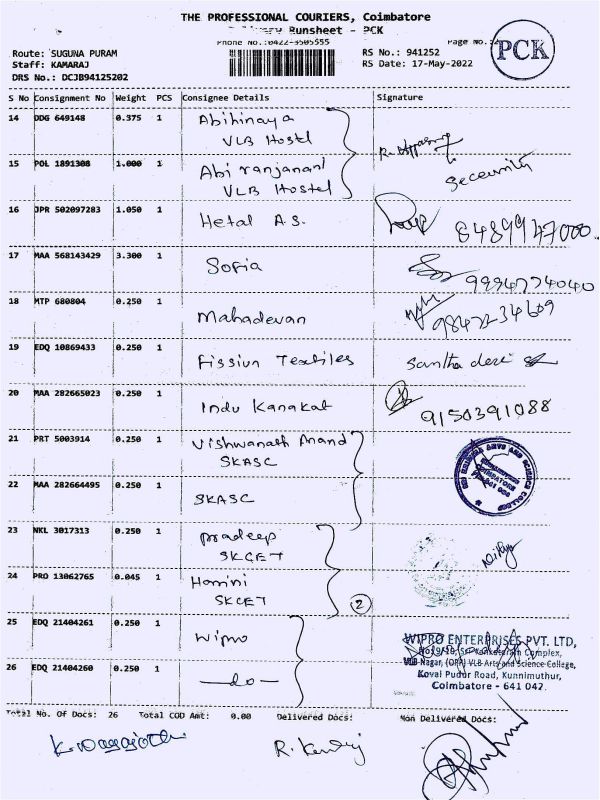 THE PROFESSIONAL COURIERS, Coimbatore
Delivery Runsheet - PCK
Phone No.:0422-3505555
Page No.:2
PCK
Route: SUGUNA PURAM
Staff: KAMARAJ
DRS No.: DCJB94125202
RS No.: 941252
RS Date: 17-May-2022
S No Consignment No Weight PCS Consignee Details Signature
14 DDG 649148 0.375 1 Abihinaya
VLB Hostel
15 POL 1891308 1.000 1 Abi ranjananl
VLB Hostel
Security
16 JPR 502097283 1.050 1 Hetal A.S. 8489947000
17 MAA 568143429 3.300 1 Sofia 9994774040
18 MTP 680804 0.250 1 Mahadevan
19 EDQ 10869433 0.250 1 Fission Textiles Santha devi
20 MAA 282665023 0.250 1 Indu Kanakat 9150391088
21 PRT 5003914 0.250 1 Vishwanath Anand
SKASC
22 MAA 282664495 0.250 1 SKASC
SRI KRISHNA ARTS AND SCIENCE COLLEGE
COIMBATORE
23 NKL 3017313 0.250 1 Pradeep
SKCET
24 PRO 13062765 0.045 1 Harini
SKCET
2
25 EDQ 21404261 0.250 1 Wipro
26 EDQ 21404260 0.250 1 -do-
WIPRO ENTERPRISES PVT. LTD,
VLB Nagar, (OPP) VLB Arts and Science College,
Kovai Pudur Road, Kunnimuthur,
Coimbatore - 641 042.
Total No. Of Docs: 26 Total COD Amt: 0.00 Delivered Docs: Non Delivered Docs: